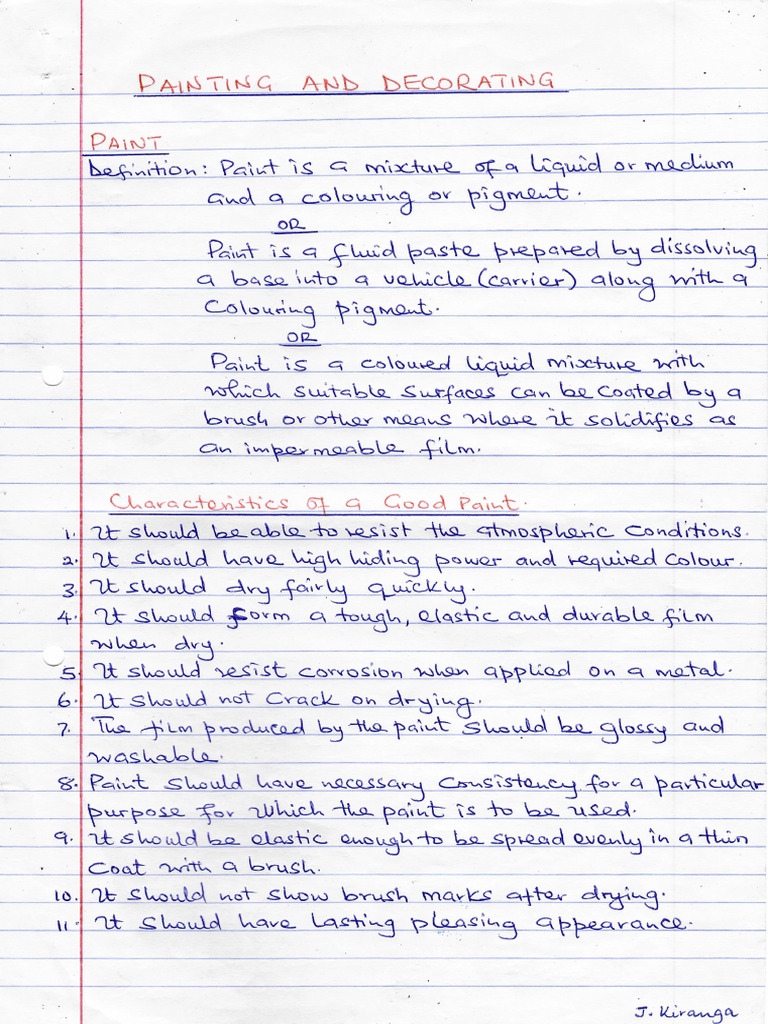 PAINTING AND DECORATING
PAINT
Definition: Paint is a mixture of a liquid or medium
and a colouring or pigment.
OR
Paint is a fluid paste prepared by dissolving
a base into a vehicle (carrier) along with a
Colouring pigment.
OR
Paint is a coloured liquid mixture with
which suitable surfaces can be coated by a
brush or other means where it solidifies as
an impermeable film.
Characteristics of a Good Paint.
1. It should be able to resist the atmospheric conditions.
2. It should have high hiding power and required colour.
3. It should dry fairly quickly.
4. It should form a tough, elastic and durable film
when dry.
5. It should resist corrosion when applied on a metal.
6. It should not crack on drying.
7. The film produced by the paint should be glossy and
washable.
8. Paint should have necessary consistency for a particular
purpose for which the paint is to be used.
9. It should be elastic enough to be spread evenly in a thin
coat with a brush.
10. It should not show brush marks after drying.
11. It should have lasting pleasing appearance.
J. Kiranga